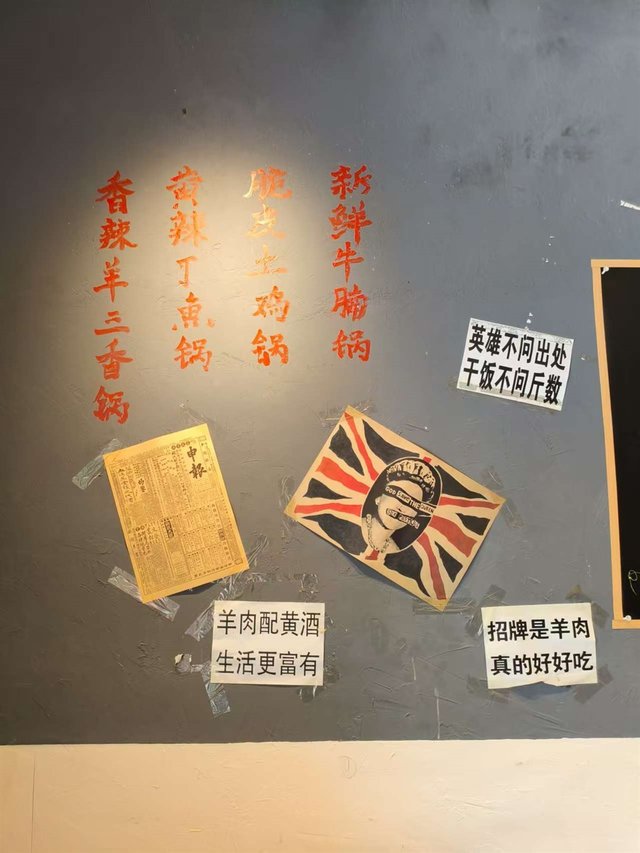 新鲜牛腩锅
脆皮土鸡锅
黄辣丁鱼锅
香辣羊三香锅
英雄不问出处
干饭不问斤数
申報
GOD SAVE THE QUEEN
羊肉配黄酒
生活更富有
招牌是羊肉
真的好好吃